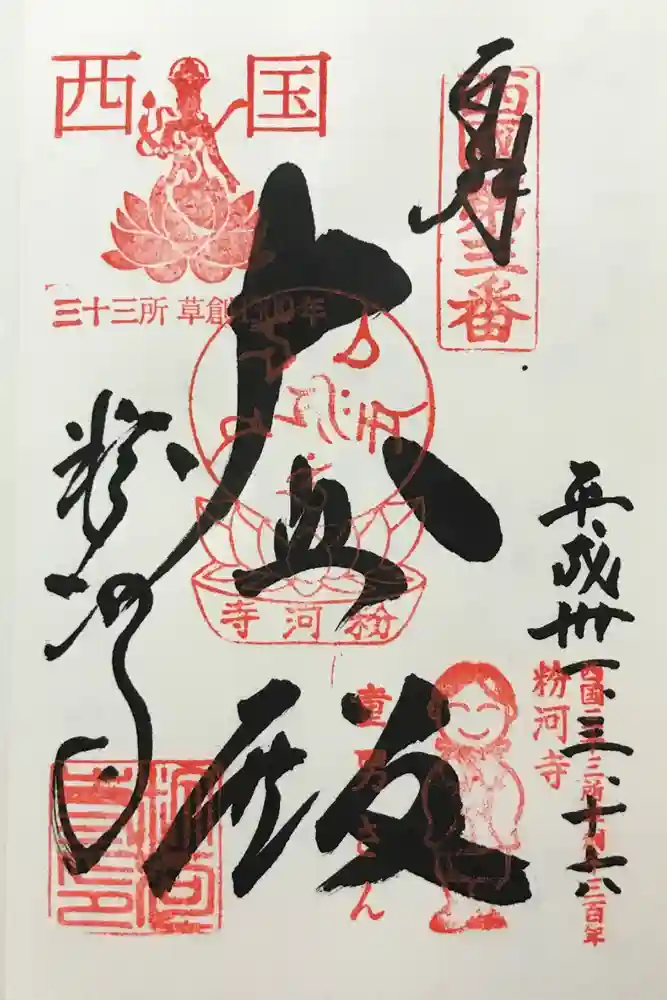 奉拝
西国第三番
平成卅一、三、十六
西国三十三所草創千三百年
粉河寺
大悲殿
粉河寺
童男さん
粉河寺
西国
三十三所 草創1300年